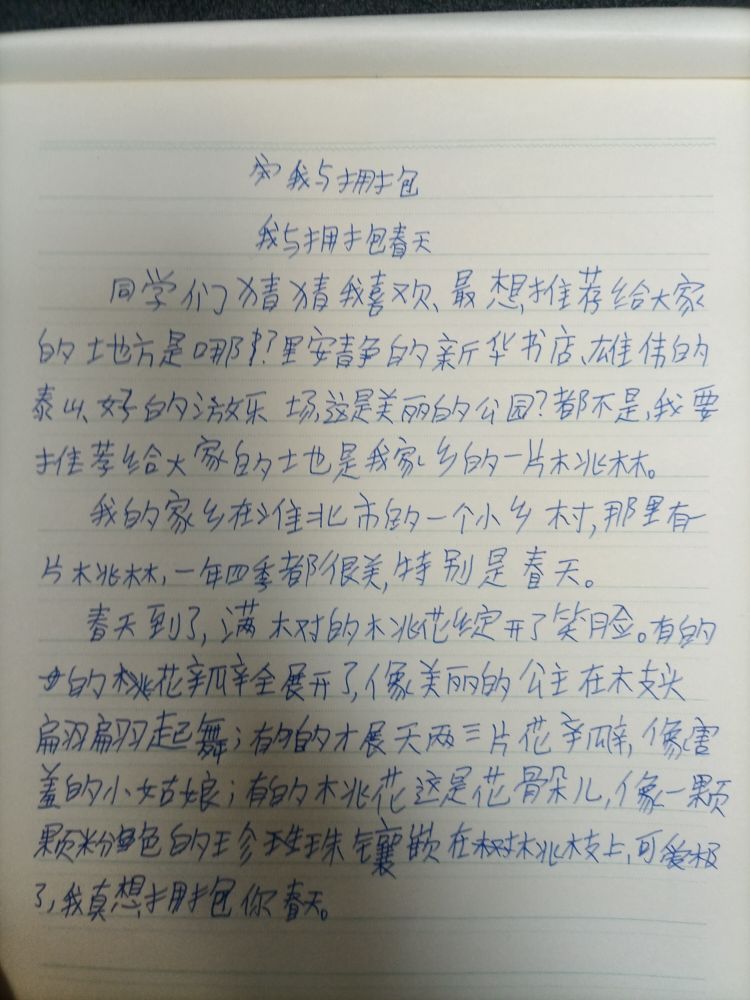 我与拥抱
我与拥抱春天
同学们猜猜我喜欢、最想推荐给大家
的地方是哪?里安静的新华书店、雄伟的
泰山、好的游乐场,这是美丽的公园?都不是,我要
推荐给大家的地是我家乡的一片桃林。
我的家乡在淮北市的一个小乡村,那里有一
片桃林,一年四季都很美,特别是春天。
春天到了,满树的桃花绽开了笑脸。有的
的桃花瓣全展开了,像美丽的公主在枝头
翩翩起舞;有的才展天两三片花瓣,像害
羞的小姑娘;有的桃花这是花骨朵儿,像一颗
颗粉色的珍珠镶嵌在树桃枝上,可爱极
了,我真想拥抱你春天。